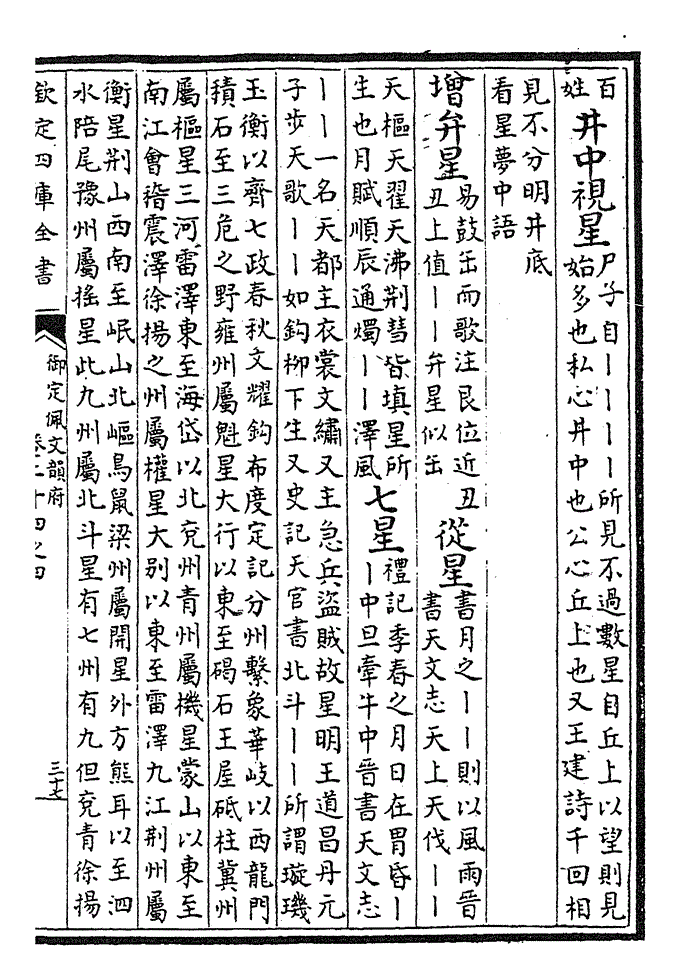 百姓井中視星尸子自丨丨丨丨所見不過數星自丘上以望則見
始多也私心井中也公心丘上也又王建詩千回相
見不分明井底
看星夢中語
增弁星易鼓缶而歌注艮位近丑
丑上值丨丨弁星似缶
從星書月之丨丨則以風雨晉
書天文志天上天伐丨丨
天樞天翟天沸荆彗皆填星所
生也月賦順辰通燭丨丨澤風
七星禮記季春之月日在胃昏丨
丨中旦牽牛中晉書天文志
丨丨一名天都主衣裳文繡又主急兵盜賊故星明王道昌丹元
子步天歌丨丨如鈎柳下生又史記天官書北斗丨丨所謂璇璣
玉衡以齊七政春秋文耀鈎布度定記分州繫象華岐以西龍門
積石至三危之野雍州屬魁星大行以東至碣石王屋砥柱冀州
屬樞星三河雷澤東至海岱以北兗州青州屬機星蒙山以東至
南江會稽震澤徐揚之州屬權星大别以東至雷澤九江荆州屬
衡星荆山西南至岷山北嶇鳥鼠梁州屬開星外方熊耳以至泗
水陪尾豫州屬搖星此九州屬北斗星有七州有九但兗青徐揚
欽定四庫全書
御定佩文韻府
卷二十四之四
三十七